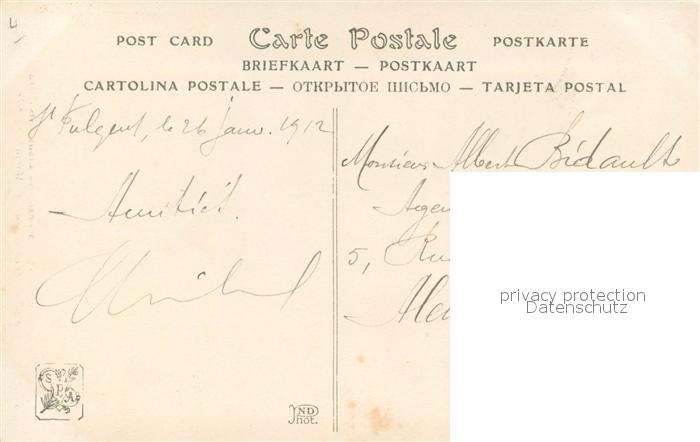 4
POST CARD Carte Postale POSTKARTE
BRIEFKAART — POSTKAART
CARTOLINA POSTALE — ОТКРЫТОЕ ПИСЬМО — TARJETA POSTAL
St Fulgent, le 26 janv. 1912
Amitiés.
Monsieur Albert Bidault
Agen
5, Rue
privacy protection
Datenschutz
S P A
ND
Phot.